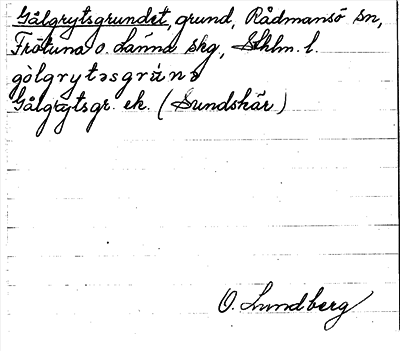 Gålgrytsgrundet, grund, Rådmansö sn,
Frötuna o. Länna skg, Sthlm. l.
gòlgrytəsgránə
Gålgrytsgr. ek. (Sundskär)
O. Lundberg